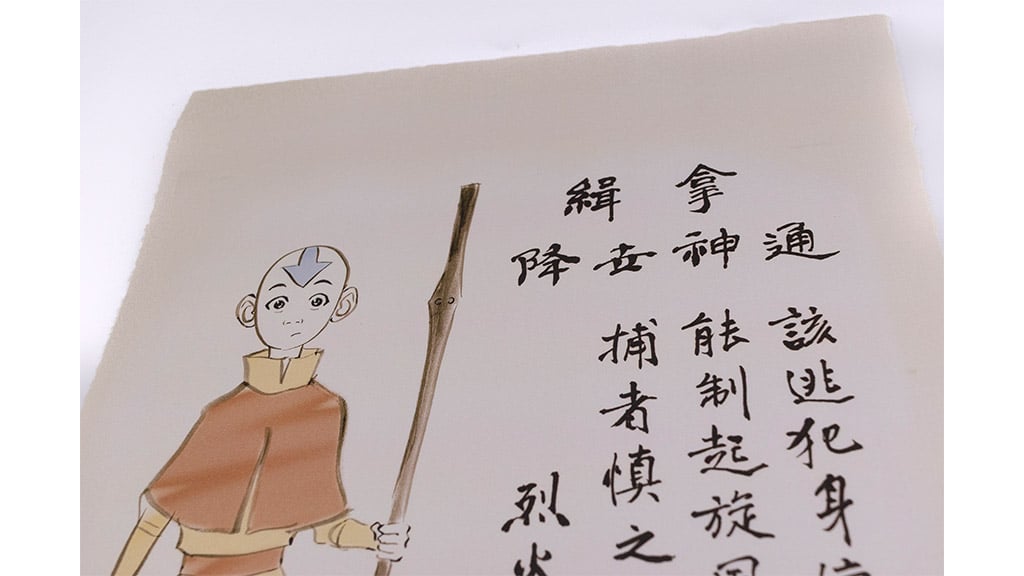 緝拿
降世神通
該逃犯身
能制起旋風
捕者慎之
烈火